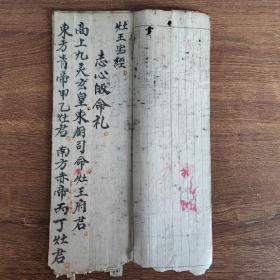 灶王宝經
志心皈命礼
高上九天玄皇東厨司命灶王府君
東方青帝甲乙灶君 南方赤帝丙丁灶君